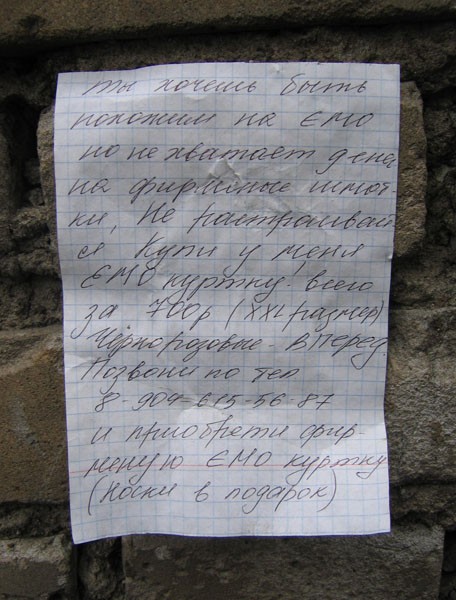 ты хочешь быть
похожим на ЕМО
но не хватает дене
на фирменные шмот-
ки, Не растраивай
ся Купи у меня
ЕМО куртку. всего
за 700р (XXL размер)
Чёрнорозовые - вперед.
Позвони по тел
8-904-615-56-87
и приобрети фир-
меную ЕМО куртку
(Носки в подарок)